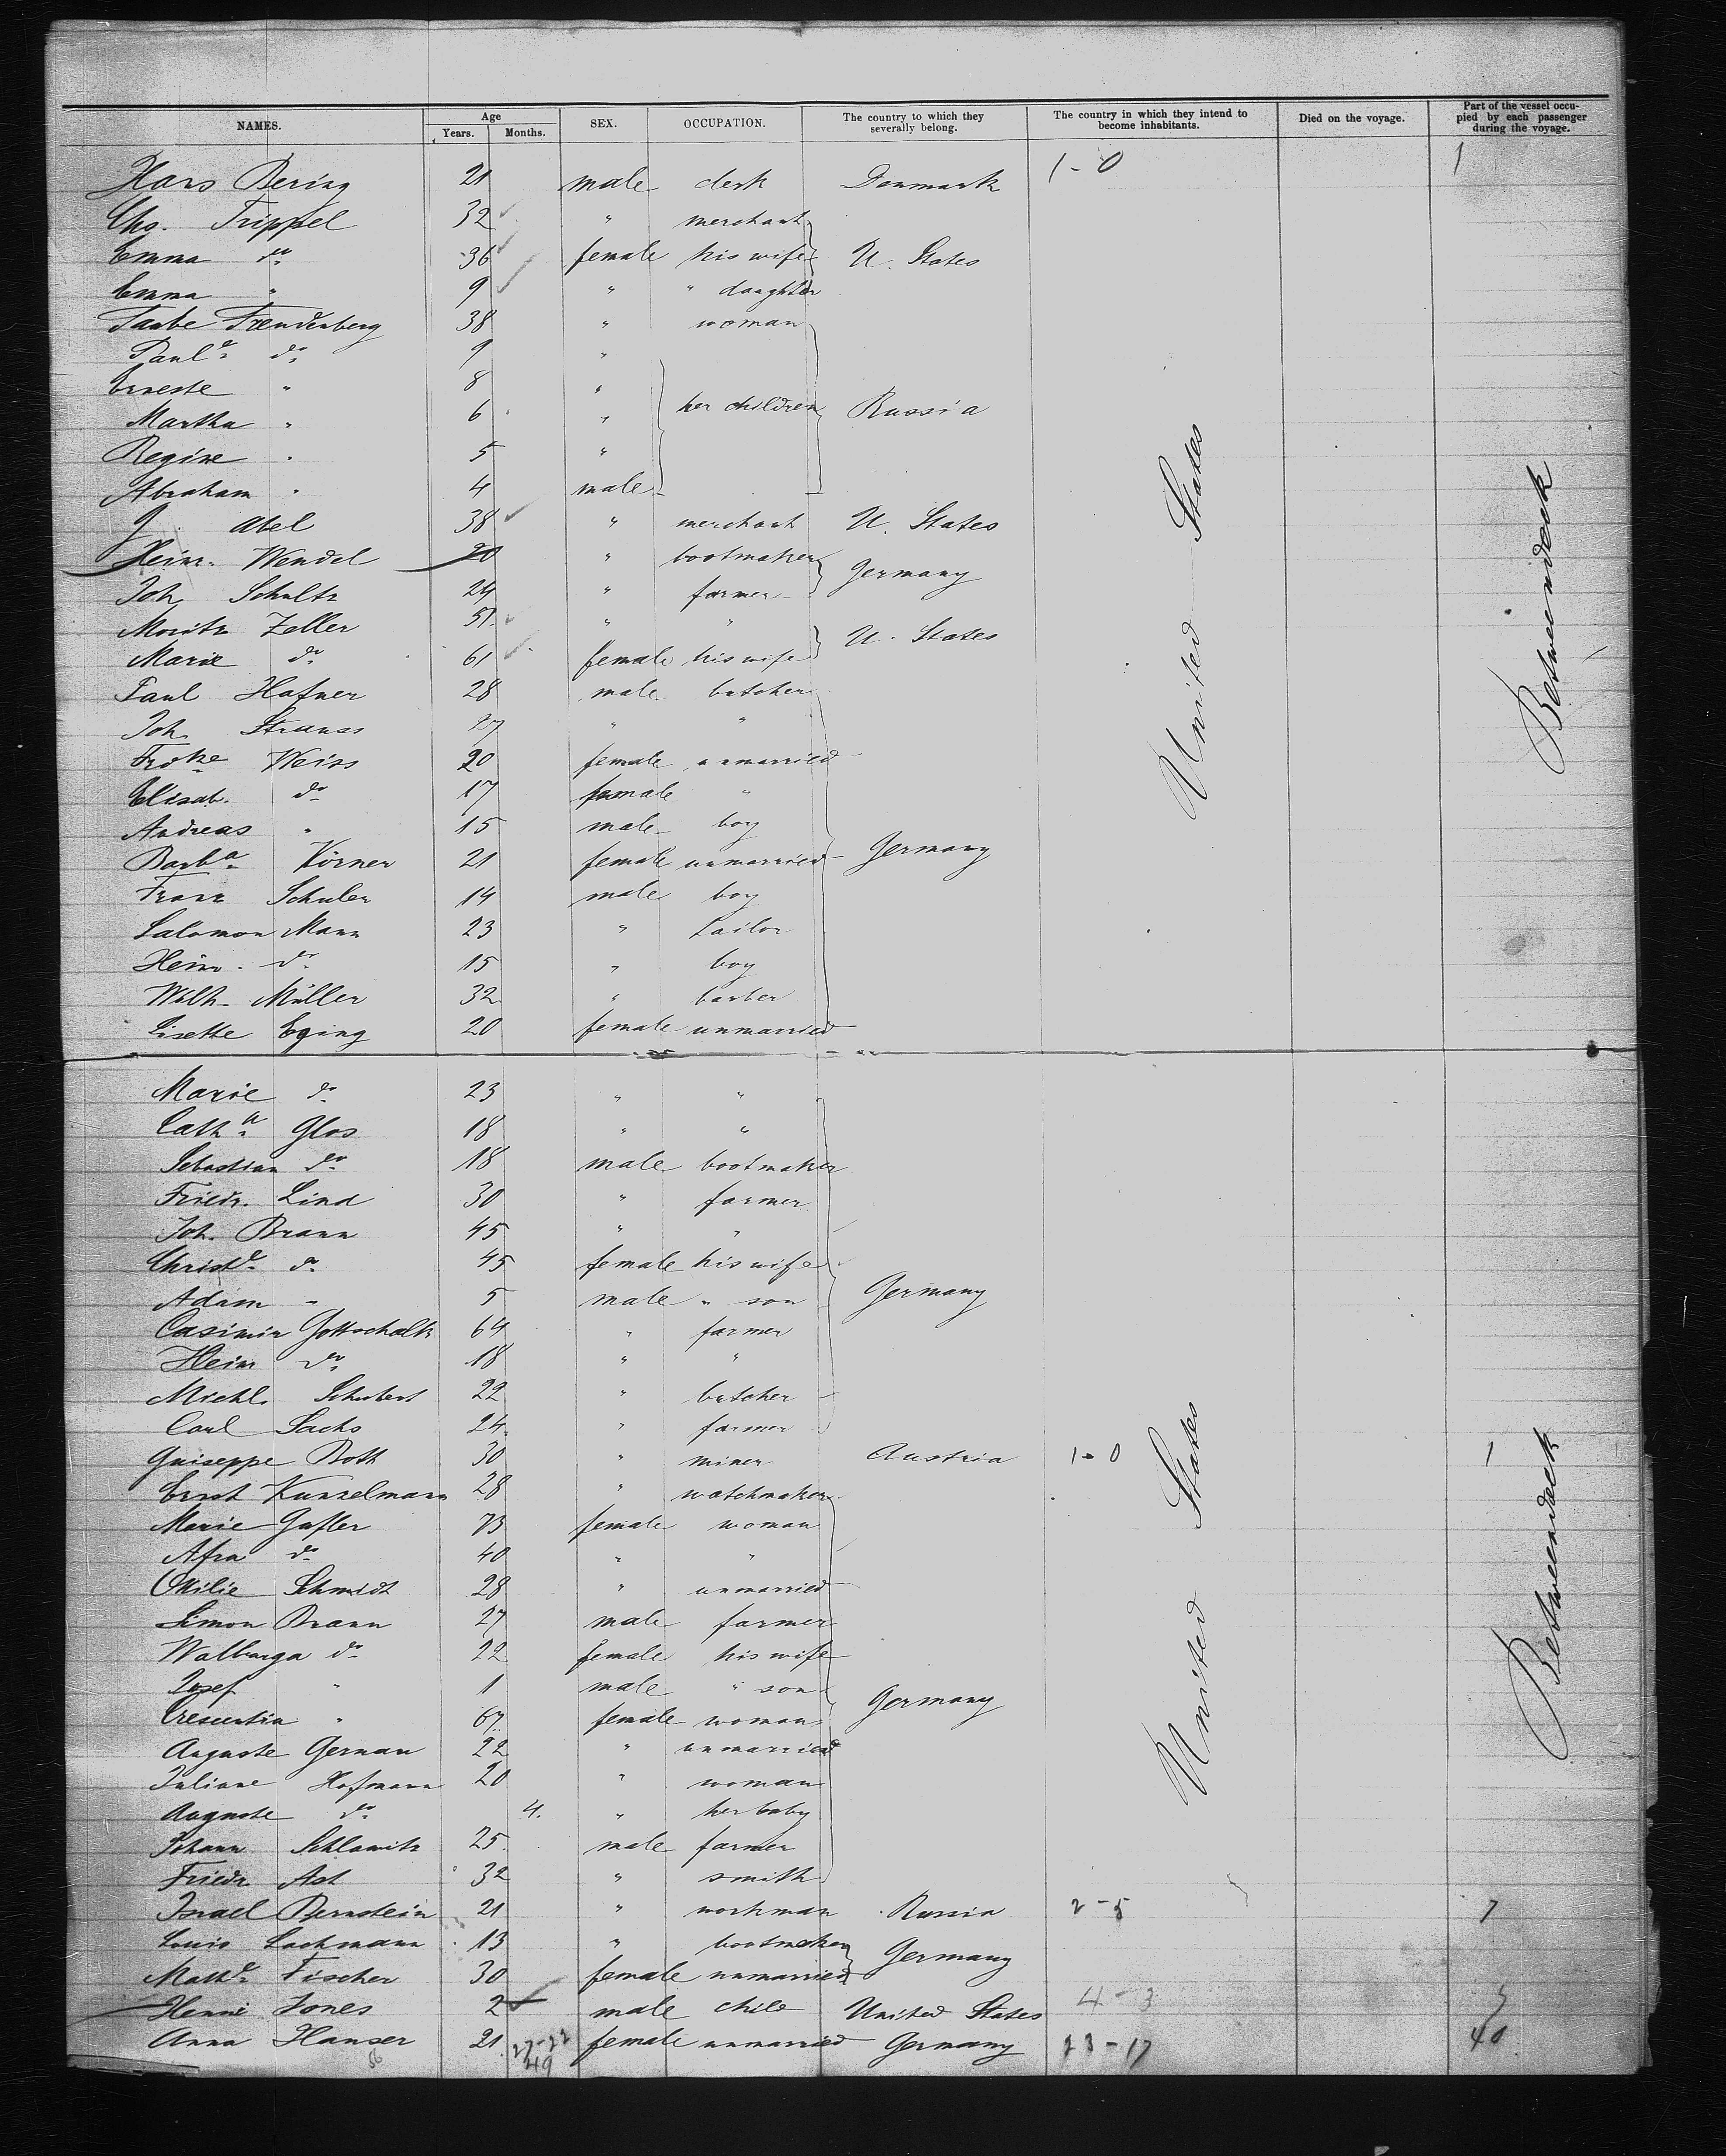 NAMES. Age Years. Months. SEX. OCCUPATION. The country to which they severally belong. The country in which they intend to become inhabitants. Died on the voyage. Part of the vessel occupied by each passenger during the voyage.
Hans Bering 21 male clerk Denmark 1-0 1
Chs. Trippel 32 " merchant
Emma do 36 female his wife U. States
Emma " 9 " " daughter
Taube Freudenberg 38 " woman
Paule do 9 "
Erneste " 8 "
Martha " 6 " her children Russia
Regine " 5 "
Abraham " 4 male
J. Abel 38 " merchant U. States
Heinr. Wendel 20 " bootmaker Germany
Joh. Schultz 24 " farmer
Moritz Zeller 51 " " U. States
Marie do 61 female his wife
Paul Hafner 28 male butcher
Joh. Strauss 27 " "
Weiss 20 female unmarried
Elisab. do 17 female "
Andreas " 15 male boy
Barba Körner 21 female unmarried Germany
Franz Schuler 14 male boy
Salomon Mann 23 " tailor
Heinr. do 15 " boy
Wilh. Müller 32 " barber
Lisette Eging 20 female unmarried
United States
Betweendeck
Marie do 23 " "
Catha Glos 18 " "
Sebastian do 18 male bootmaker
Friedr. Lind 30 " farmer
Joh. Braun 45 " "
Christe do 45 female his wife
Adam " 5 male " son Germany
Casimir Gottschalk 64 " farmer
Heinr do 18 " "
Michl. Schubert 22 " butcher
Carl Sachs 24 " farmer
Guiseppe Roth 30 " miner Austria 1-0 1
Ernst Kunzelmann 28 " watchmaker
Marie 73 female woman
Afra do 40 " "
Ottilie Schmidt 28 " unmarried
Simon Braun 27 male farmer
Walburga do 22 female his wife
Josef " 1 male " son Germany
Crescentia " 67 female woman
Auguste Gernau 22 " unmarried
Juliane Hofmann 20 " woman
Auguste do 4. " her baby
Johann Schlawitz 25 male farmer
Friedr. Ast 32 " smith
Israel Bernstein 21 " workman Russia 2-5 7
Louis Lachmann 13 " bootmaker Germany
Mathe Fischer 30 female unmarried
Henri Jones 2 male child United States 4-3
Anna Hanser 21 female unmarried Germany 23-17 40
27-22
49
56
United States
Betweendeck